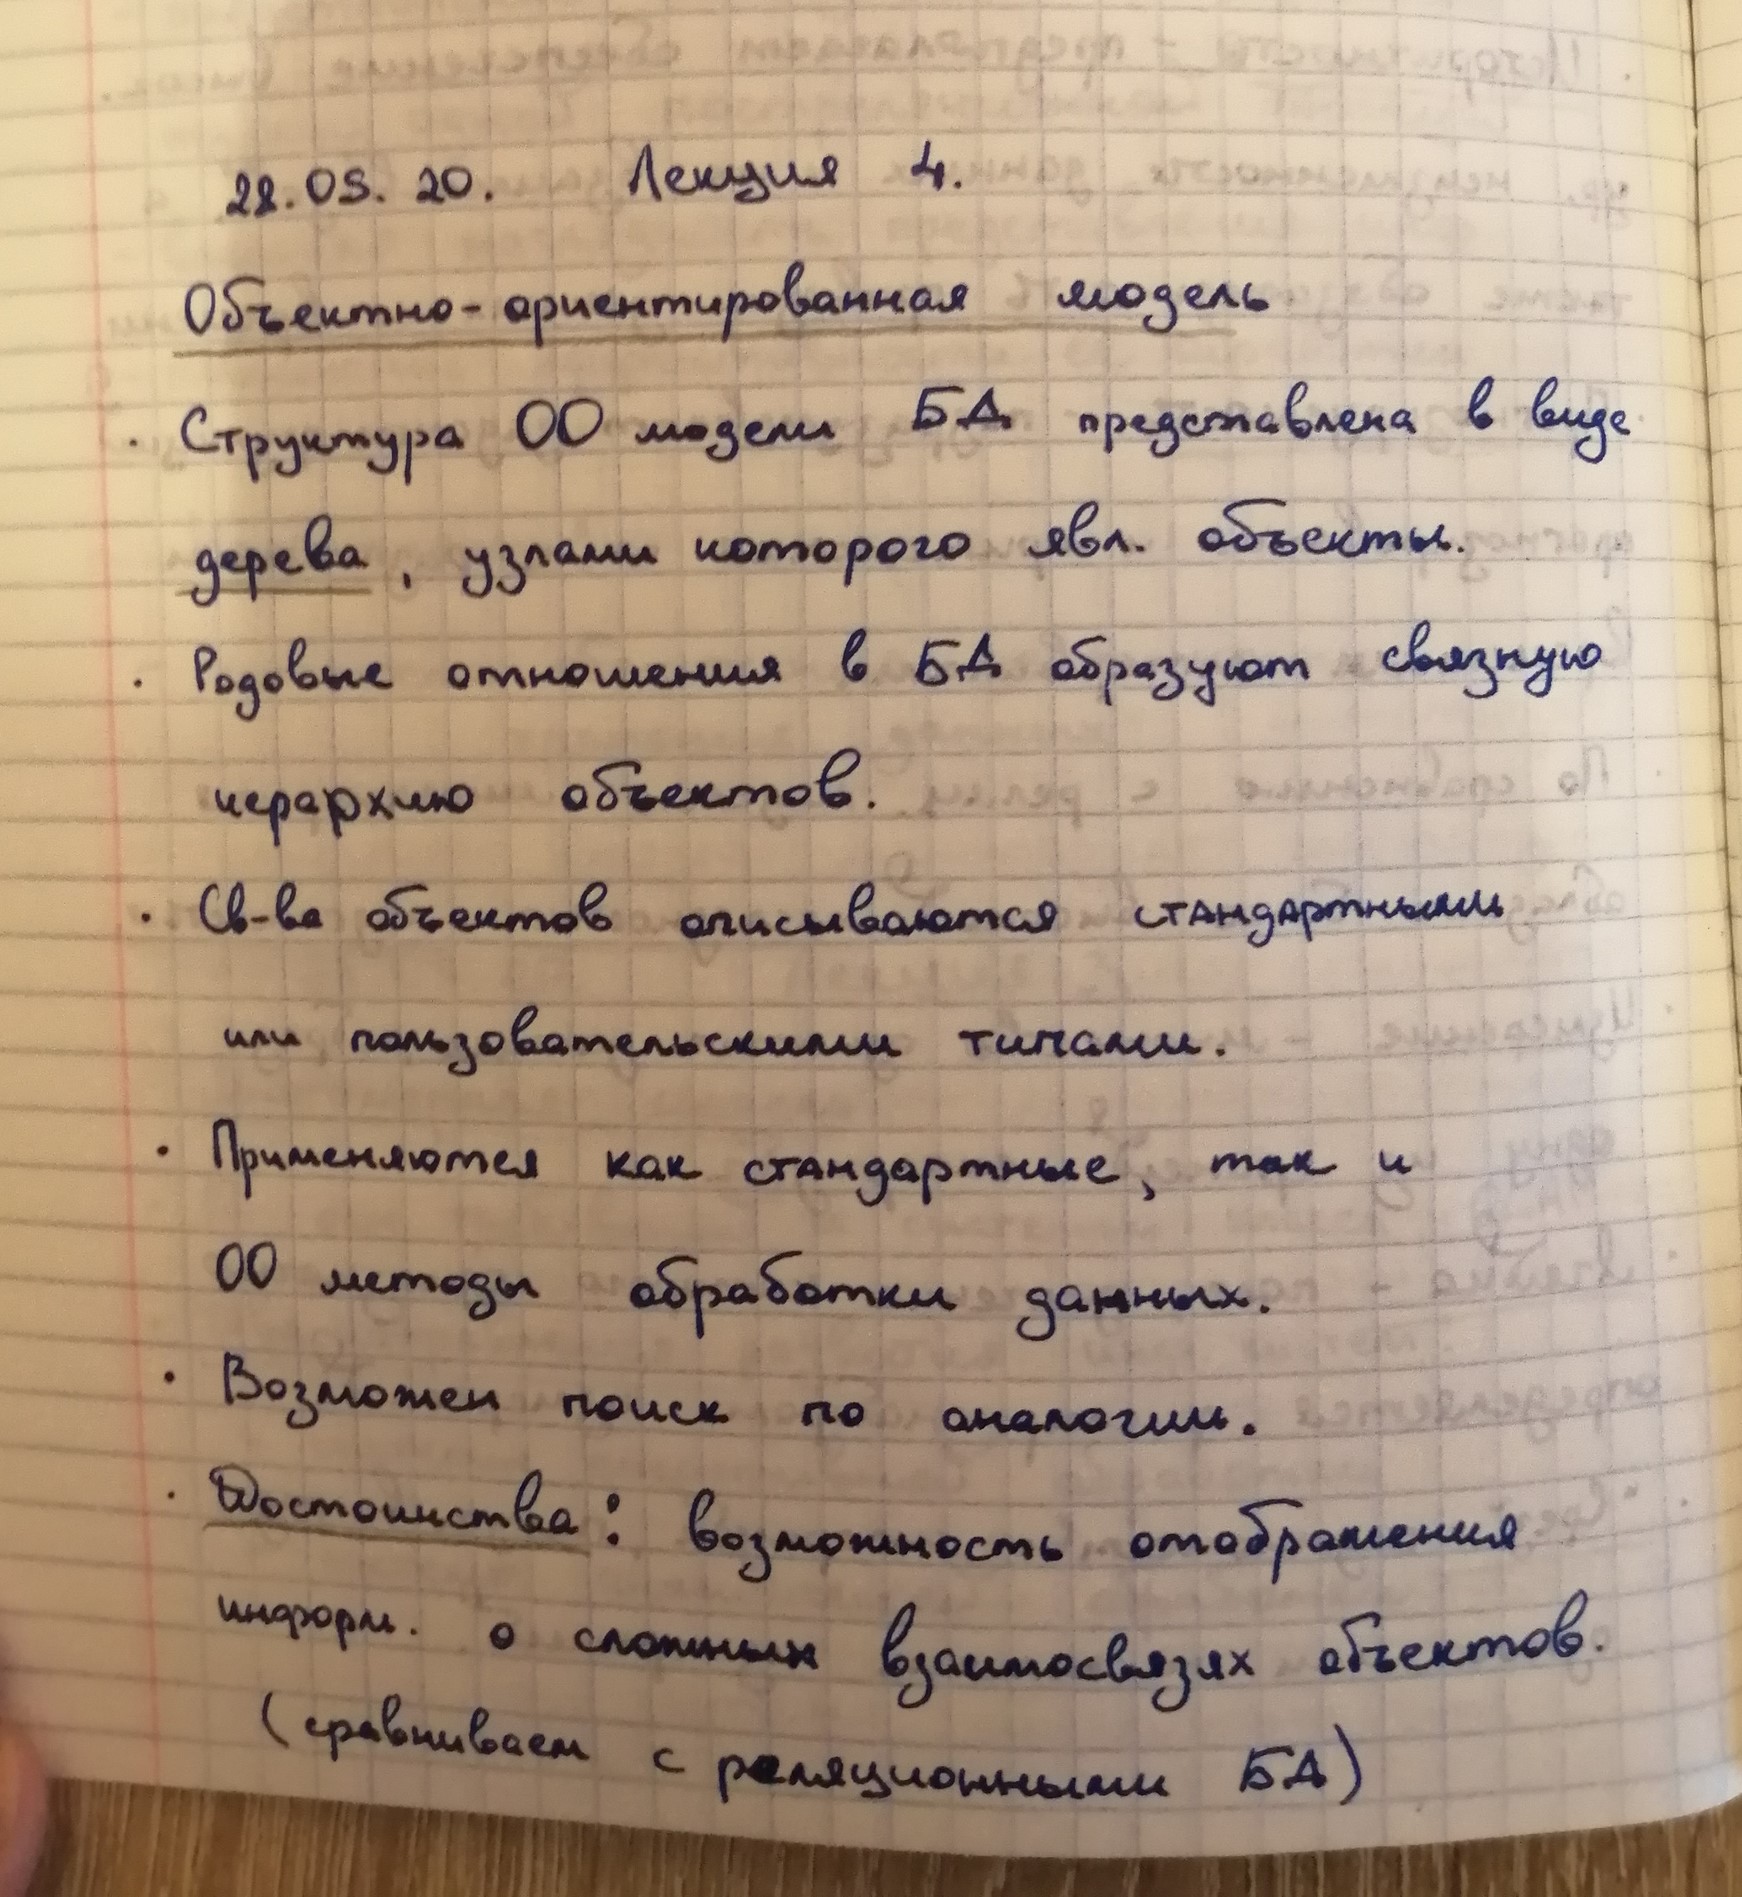 22.09.20. Лекция 4.
Объектно-ориентированная модель
· Структура ОО модели БД представлена в виде
дерева, узлами которого явл. объекты.
· Родовые отношения в БД образуют связную
иерархию объектов.
· Св-ва объектов описываются стандартными
или пользовательскими типами.
· Применяются как стандартные, так и
ОО методы обработки данных.
· Возможен поиск по аналогии.
· Достоинства: возможность отображения
информ. о сложных взаимосвязях объектов.
(сравниваем с реляционными БД)